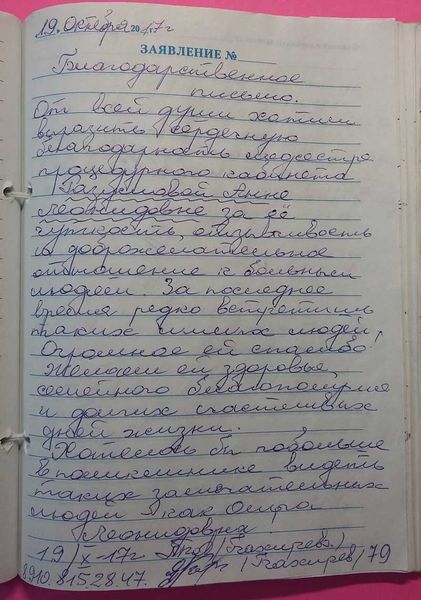 19. Октября 2017 г
ЗАЯВЛЕНИЕ №
Благодарственное
письмо.
От всей души хотим
выразить сердечную
благодарность медсестре
процедурного кабинета
Анне
Леонидовне за её
чуткость, отзывчивость
и доброжелательное
отношение к больным
людям. За последнее
время редко встретишь
таких милых людей!
Огромное ей спасибо!
Желаем ей здоровья,
семейного благополучия
и долгих счастливых
дней жизни.
Хотелось бы побольше
в поликлинике видеть
таких замечательных
людей как
Леонидовна
19/X-17г
8.910.815.28.47. 79